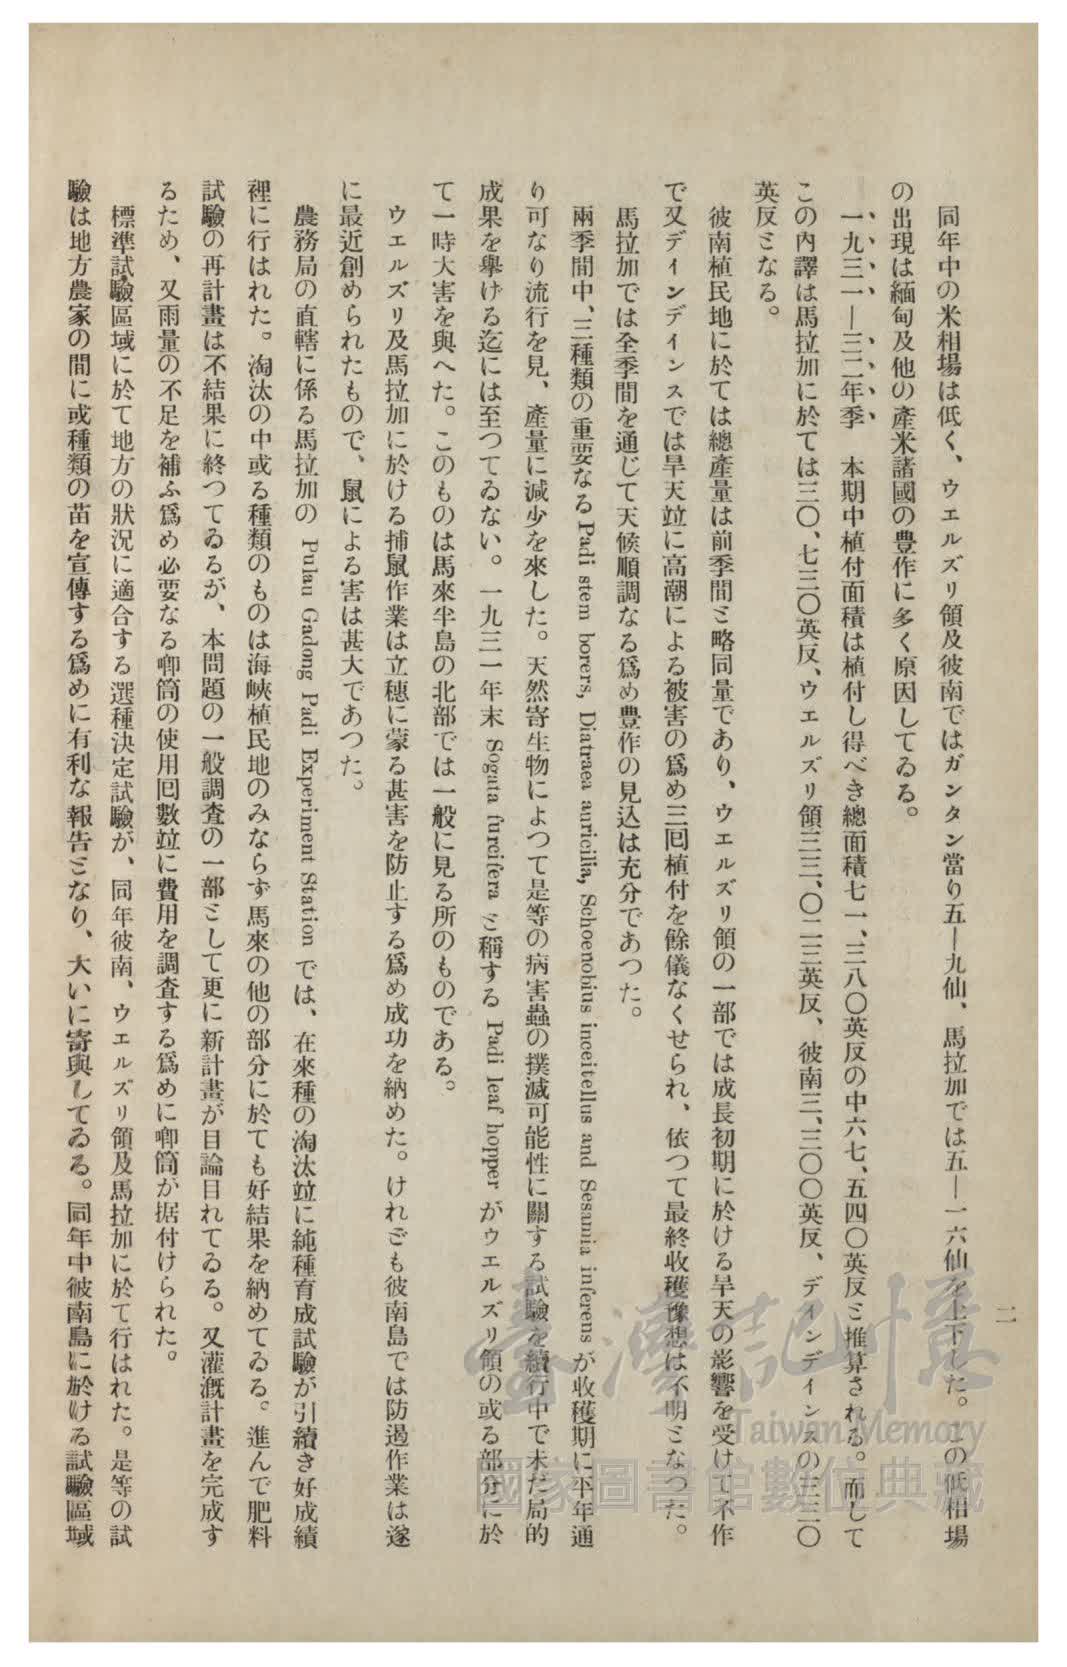 二
同年中の米相場は低く、ウエルズリ領及彼南ではガンタン當り五―九仙、馬拉加では五―一六仙を上下した。この低相場
の出現は緬甸及他の產米諸國の豊作に多く原因してゐる。
一九三一―三二年季　本期中植付面積は植付し得べき總面積七一、三八〇英反の中六七、五四〇英反と推算される。而して
この內譯は馬拉加に於ては三〇、七三〇英反、ウエルズリ領三三、〇二三英反、彼南三、三〇〇英反、デインデインスの三三〇
英反となる。
彼南植民地に於ては總產量は前季間と略同量であり、ウエルズリ領の一部では成長初期に於ける旱天の影響を受けて不作
で又デインデインスでは旱天竝に高潮による被害の爲め三囘植付を餘儀なくせられ、依つて最終收穫豫想は不明となつた。
馬拉加では全季間を通じて天候順調なる爲め豊作の見込は充分であつた。
兩季間中、三種類の重要なる Padi stem borers, Diatraea auricilia, Schoenobius inceitellus and Sesamia inferens が收穫期に平年通
り可なり流行を見、產量に減少を來した。天然寄生物によつて是等の病害蟲の撲滅可能性に關する試驗を續行中で未だ局的
成果を擧ける迄には至つてゐない。一九三一年末 Sogata furcifera と稱する Padi leaf hopper がウエルズリ領の或る部分に於
て一時大害を與へた。このものは馬來半島の北部では一般に見る所のものである。
ウエルズリ及馬拉加に於ける捕鼠作業は立穗に蒙る甚害を防止する爲め成功を納めた。けれども彼南島では防遏作業は遂
に最近創められたもので、鼠による害は甚大であつた。
農務局の直轄に係る馬拉加の Pulau Gadong Padi Experiment Station では、在來種の淘汰竝に純種育成試驗が引續き好成績
裡に行はれた。淘汰の中或る種類のものは海峽植民地のみならず馬來の他の部分に於ても好結果を納めてゐる。進んで肥料
試驗の再計畫は不結果に終つてゐるが、本問題の一般調査の一部として更に新計畫が目論目れてゐる。又灌漑計畫を完成す
るため、又雨量の不足を補ふ爲め必要なる喞筒の使用囘數竝に費用を調査する爲めに喞筒が据付けられた。
標準試驗區域に於て地方の狀況に適合する選種決定試驗が、同年彼南、ウエルズリ領及馬拉加に於て行はれた。是等の試
驗は地方農家の間に或種類の苗を宣傳する爲めに有利な報吿となり、大いに寄與してゐる。同年中彼南島に於ける試驗區域
臺灣記憶
Taiwan Memory
國家圖書館數位典藏